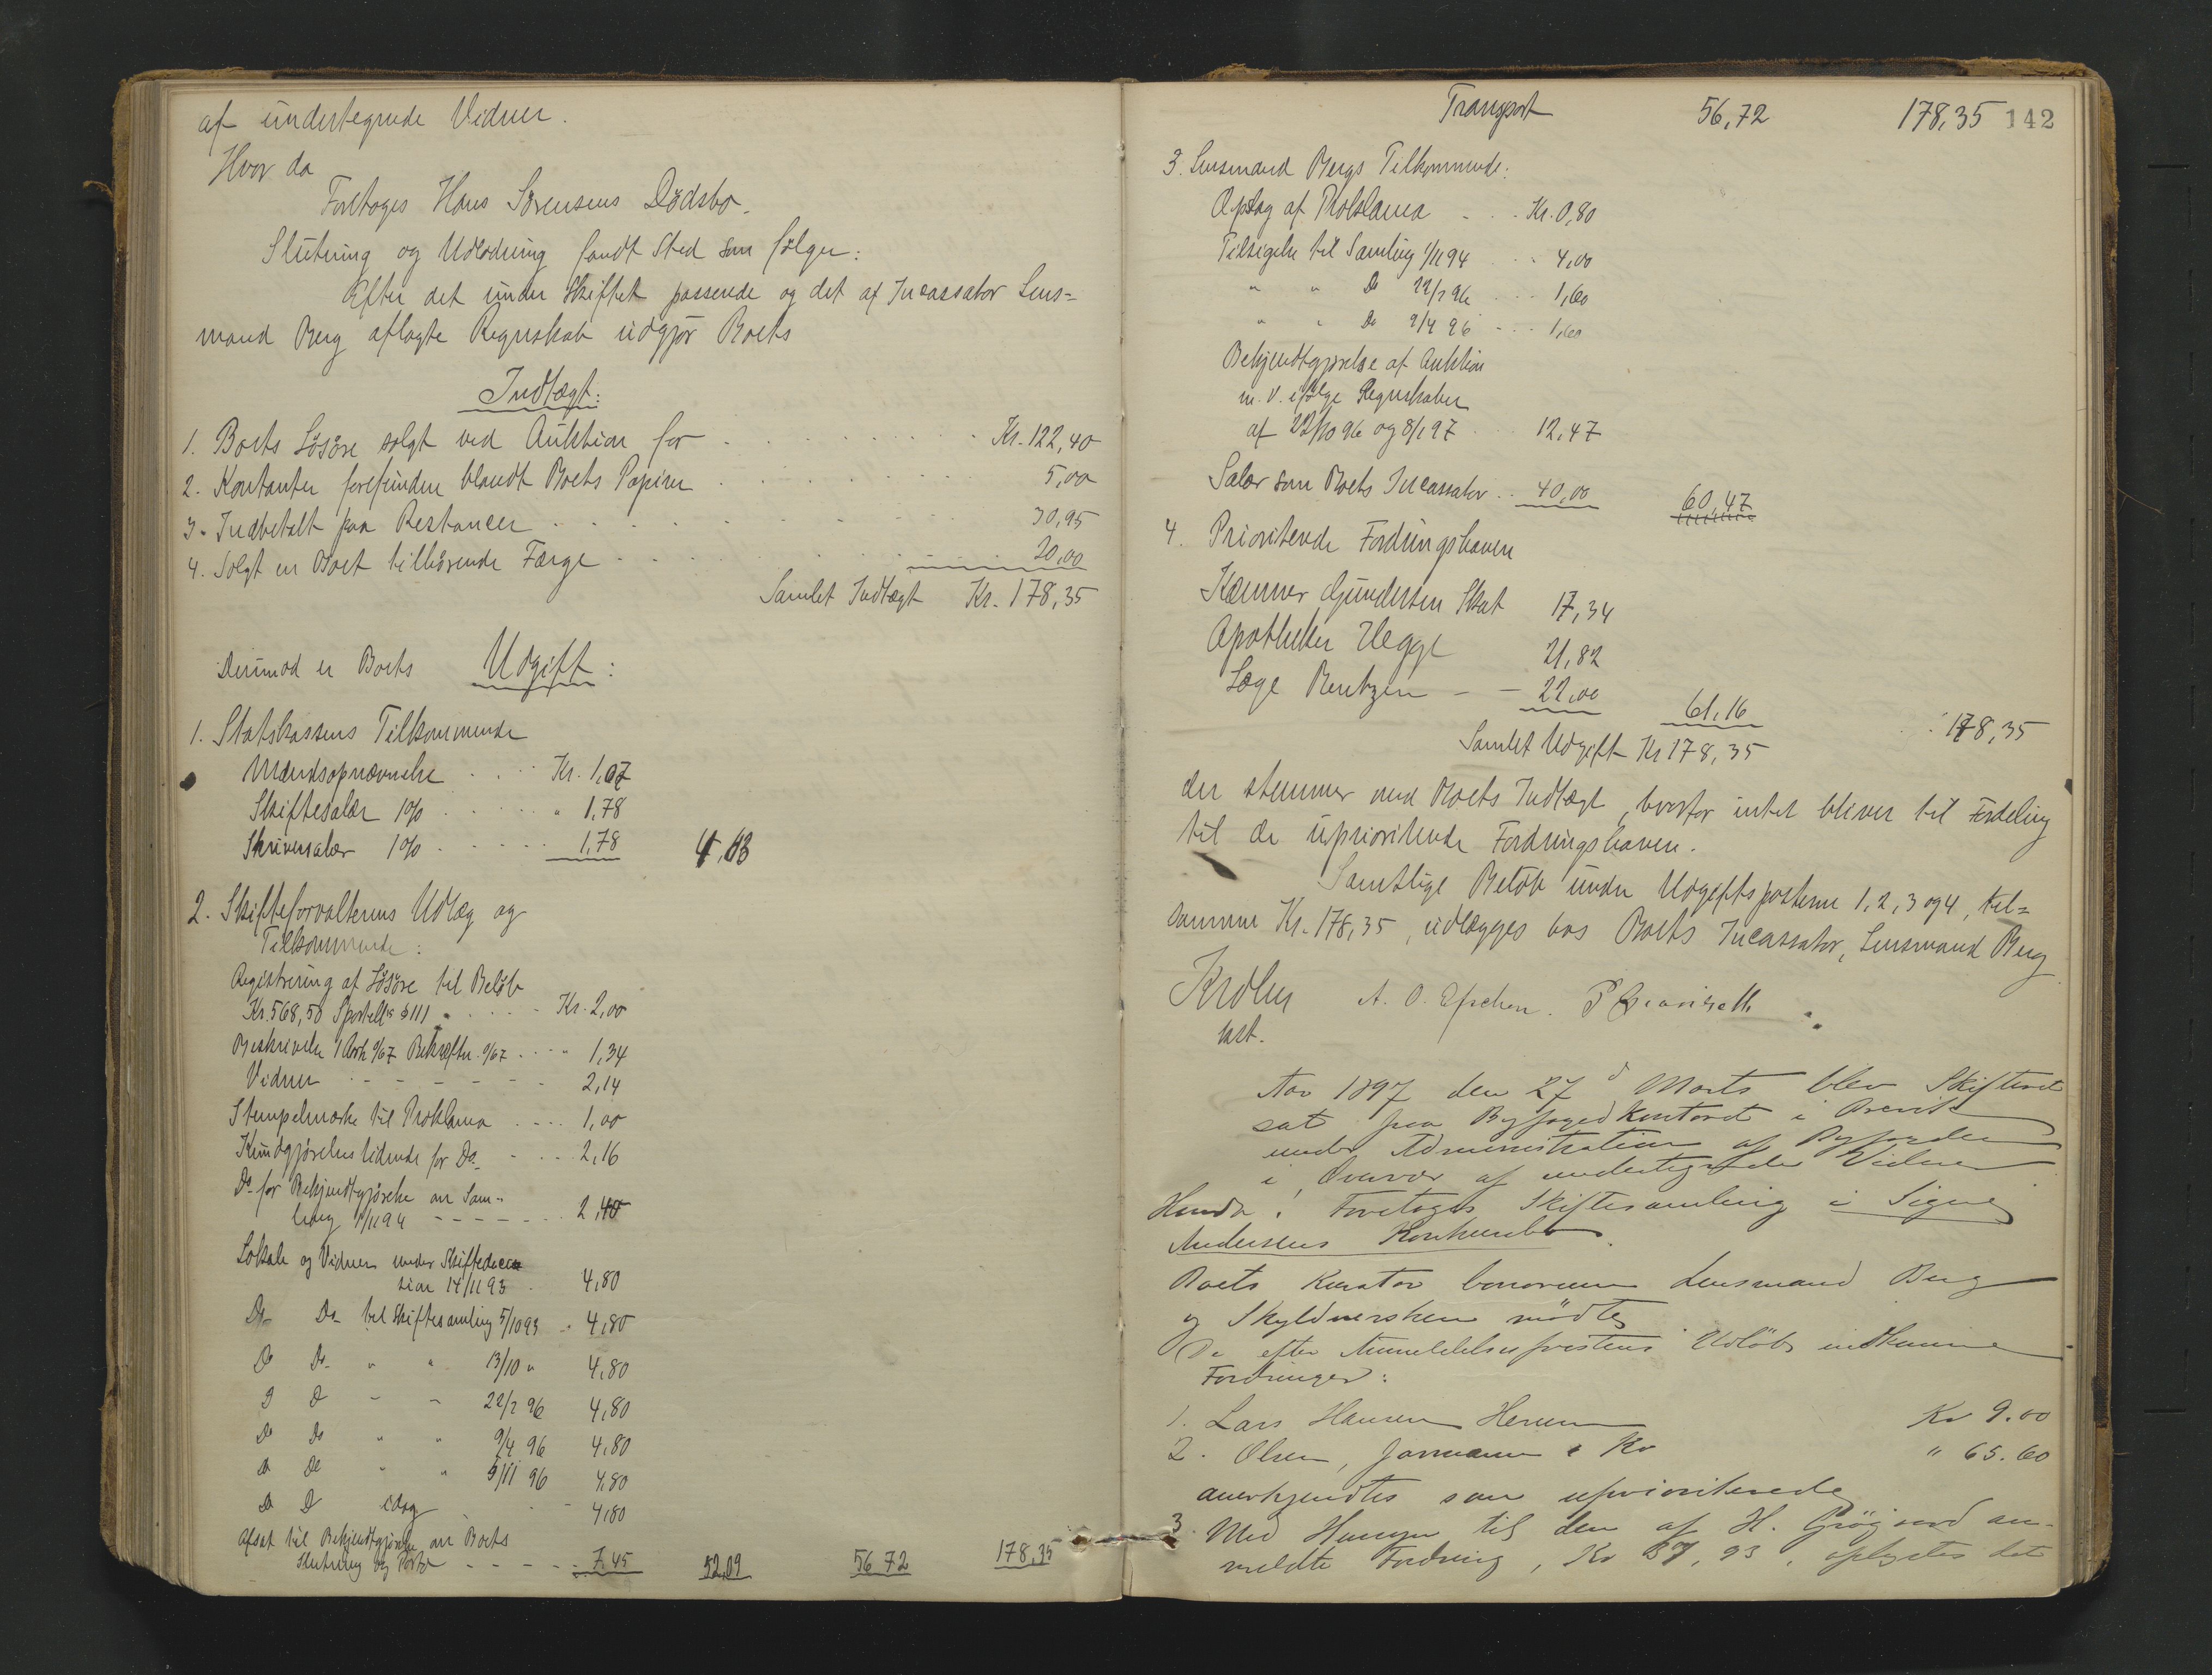 af undertegnede Vidner.
Hvor da
Foretoges Hans Sörensens Dödsbo.
Slutning og Udlodning fandt Sted som fölger:
Efter det under Skiftet passerede og det af Incassator Lens=
mand Berg aflagte Regnskab udgjör Boets
Indtægt:
1. Boets Lösöre solgt ved Auktion for Kr. 122,40
2. Kontanter forefunden blandt Boets Papirer 5,00
3. Indbetalt paa Restancer 30,95
4. Solgt en Boet tilhörende Færge 20,00
Samlet Indtægt Kr. 178,35
Derimod er Boets Udgift:
1. Statskassens Tilkommende
Mandsopnævnelse Kr. 1,07
Skiftesalær 1% " 1,78
Skriversalær 1% 1,78 4,63
2. Skifteforvalterens Udlæg og
Tilkommende:
Registrering af Lösöre til Belöb
Kr. 568,50 Sportell § 111 Kr. 2,00
Beskrivelse 1 Ark 0/67 Bekræftn. 0/67 " 1,34
Vidner 2,14
Stempelmærke til Proklama 1,00
Kundgjörelsestidende for Do 2,16
Do for Bekjendtgjörelse om Sam-
ling 1/11 94 2,40
Lokale og Vidner under
14/11 93 4,80
Do Do til Skiftesamling 5/10 93 4,80
Do Do " " 13/10 " 4,80
D D - - 22/2 96 4,80
Do Do " " 9/4 96 4,80
D Do " " 5/11 96 4,80
D D idag 4,80
Afsat til Bekjendtgjörelse om Boets
Slutning og Porto 7,45 52,09 56,72 178,35
Transport 56,72 178,35 142
3. Lensmand Bergs Tilkommende:
Opslag af Proklama Kr. 0,80
Tilsigelse til Samling 1/11 94 4,00
" " Do 22/2 96 1,60
" " Do 9/4 96 1,60
Bekjendtgjörelse af Auktion
m. v. ifölge Regnskaber
af 22/10 96 og 8/1 97 12,47
Salær som Boets Incassator 40,00 60,47
4. Prioriterede Fordringshavere
Kæmner Gundersen Skat 17,34
Apotheker Hegge 21,82
Læge Bentzen 22,00 61,16
Samlet Udgift Kr 178,35 178,35
der stemmer med Boets Indtægt, hvorfor intet bliver til Fordeling
til de uprioriterede Fordringshavere.
Samtlige Belöb under Udgiftsposterne 1, 2, 3 og 4, til=
sammen Kr. 178,35, udlægges hos Boets Incassator, Lensmand Berg
A. O.
Aar 1897 den 27d Marts blev Skifteret
sat paa Byfogedkontoret i Brevik
under Administration af Byfogden
i Overvær af undertegnede Vidner
Hvorda: Foretoges Skiftesamling i Signe
Andersens Konkursbo.
Boets Kurator bonorum Lensmand Berg
og Skyldnersken mödte
De efter Anmeldelsesfristens Udlöb indkomne
Fordringer:
1. Lars Hansen Kr 9.00
2. Olsen, & Ko " 65.60
anerkjendtes som uprioriterede
3. Med Hensyn til den af H. an-
meldte Fordring, Kr 37,93, oplystes det